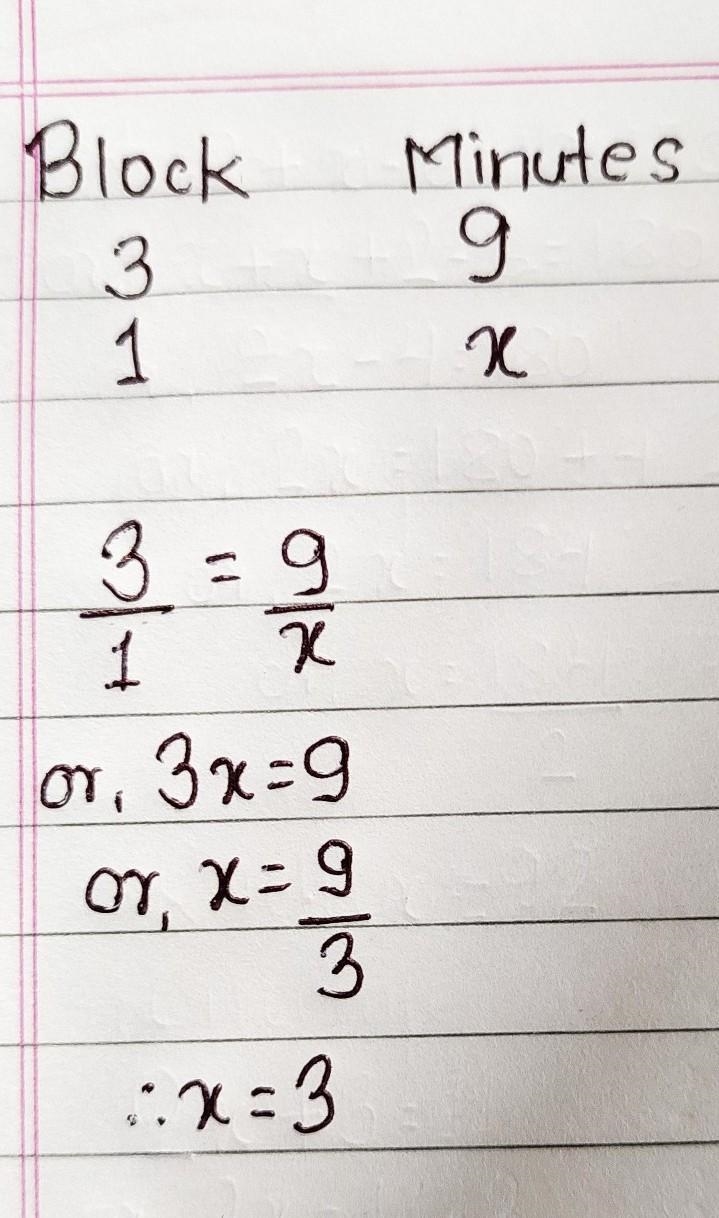 Block Minutes
3 9
1 x
3/1 = 9/x
or, 3x = 9
or, x = 9/3
∴ x = 3